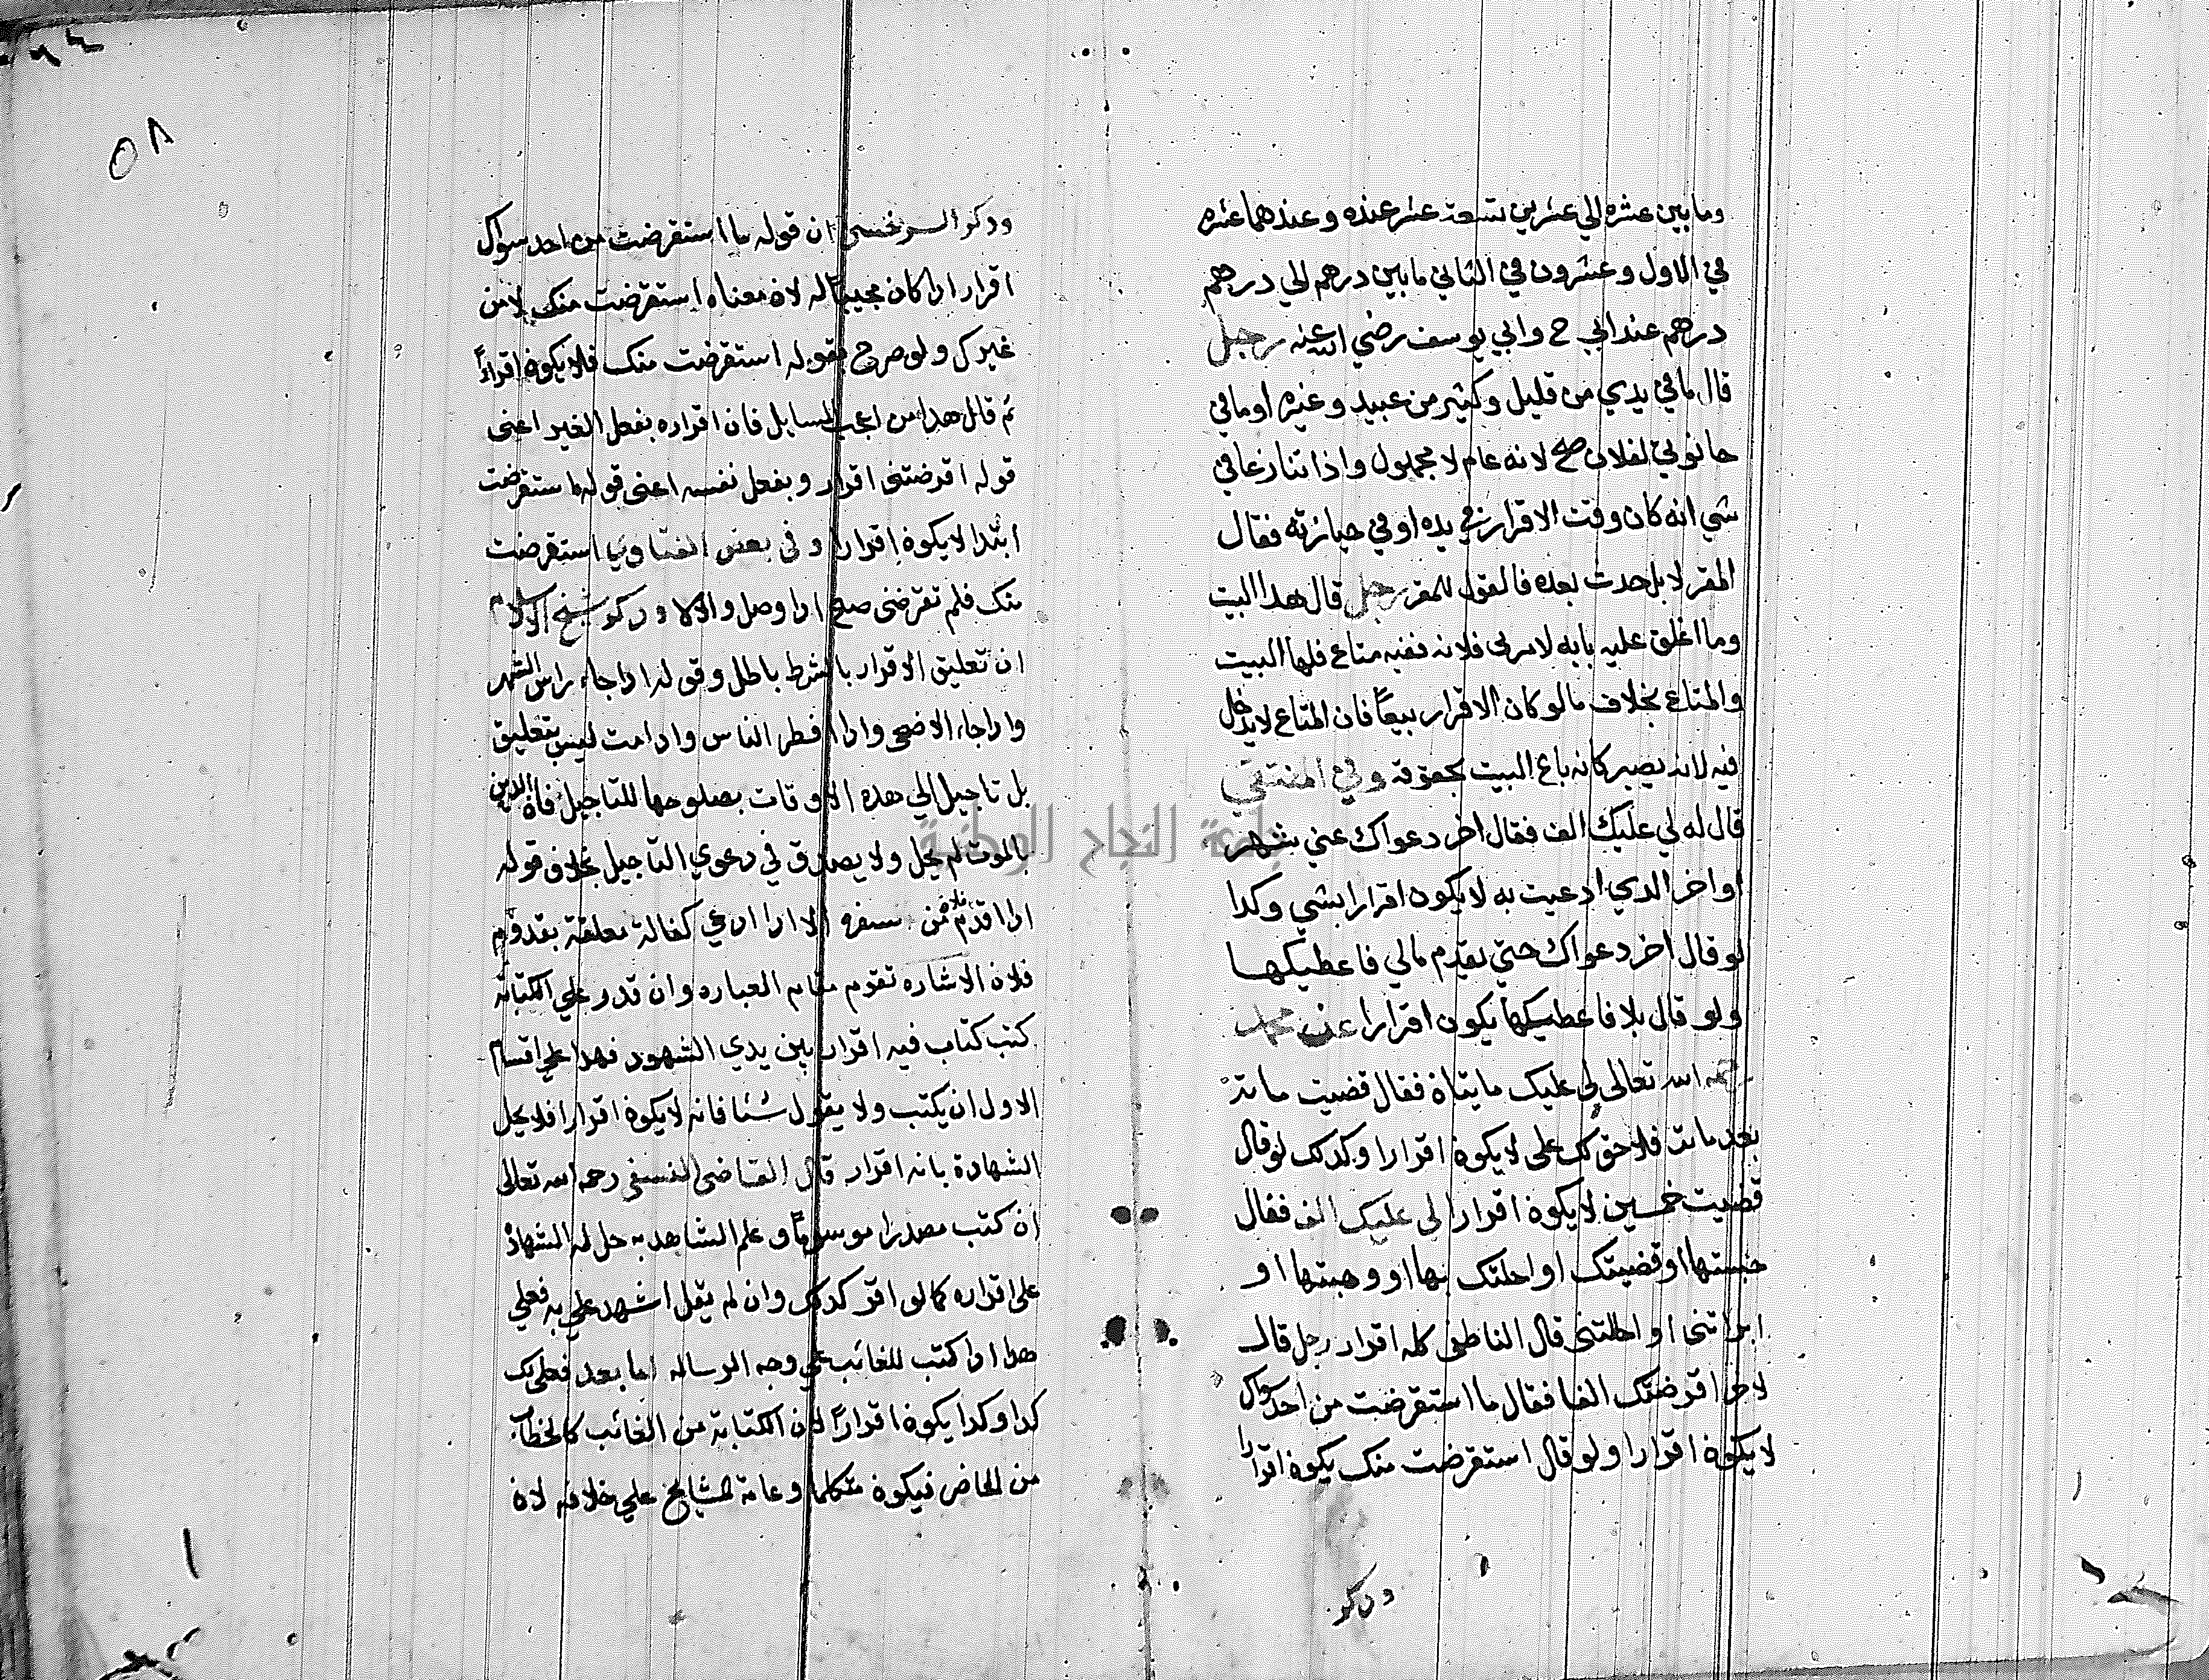 وما بين عشره الي عشرين تسعة عشر عنده وعندهما عشره
في الاول وعشرون في الثاني ما بين درهم الي درهم
درهم عند ابي ح وابي يوسف رضي الله عنه رجل
قال ما في يدي من قليل وكثير من عبيد وغيره او ما في
حانوتي لفلان صح لانه عام لا مجهول واذا تنازعا في
شي انه كان وقت الاقرار في يده او في حيازته فقال
المقر لا بل حدث بعده فالقول للمقر رجل قال هذا البيت
وما اغلق عليه بابه لامرتي فلانه ففيه متاع فلها البيت
والمتاع بخلاف ما لو كان الاقرار بيعاً فان المتاع لا يدخل
فيه لانه يصير كانه باع البيت بحقوقه وفي المنتقي
قال له لي عليك الف فقال اخر دعواك عني شهر
او اخر الدي ادعيت به لا يكون اقرارا بشي وكدا
لو قال اخر دعواك حتي يقدم مالي فاعطيكها
ولو قال بلا فاعطيكها يكون اقرارا عن محمد
رحمه الله تعالى لي عليك مايتان فقال قضيت مائة
بعد مائة فلا حق لك على لا يكون اقرارا وكدلك لو قال
قضيت خمسين لا يكون اقرارا لى عليك الف فقال
حبستها او قضيتك او احلتك بها او وهبتها او
ابراتنى او احللتنى قال الناطفى كله اقرار رجل قال
لاخر اقرضتك الفا فقال ما استقرضت من احد سواك
لا يكون اقرارا ولو قال استقرضت منك يكون اقرارا
ودكر
٥٨
ودكر السرخسي ان قوله ما استقرضت من احد سواك
اقرار ادا كان مجيباً له لان معناه استقرضت منك لا من
غيرك ولو صرح بقوله استقرضت منك فلا يكون اقراراً
ثم قال هدا من اعجب المسايل فان اقراره بفعل الغير اعنى
قوله اقرضتنى اقرار وبفعل نفسه اعنى قوله استقرضت
ابتدا لا يكون اقرارا وفى بعض الفتاوي استقرضت
منك فلم تقرضنى صح ادا وصل والا لا ودكر شيخ الاسلام
ان تعليق الاقرار بالشرط باطل وقوله ادا جاء راس الشهر
وادا جاء الاضحى وادا افطر الناس وادا مت ليس بتعليق
بل تاجيل الي هده الاوقات بصلوحها للتاجيل فان الدين
بالموت لم يحل ولا يصدق في دعوي التاجيل بخلاف قوله
ادا قدم فلان من سفره الا ادا ادعي كفالة معلقة بقدوم
فلان الاشاره تقوم مقام العباره وان قدر علي الكتابة
كتب كتاب فيه اقرار بين يدي الشهود فهدا علي اقسام
الاول ان يكتب ولا يقول شئا فانه لا يكون اقرارا فلا يحل
الشهادة بانه اقرار قال القاضى النسفى رحمه الله تعالى
ان كتب مصدرا موسوماً وعلم الشاهد به حل له الشهادة
على اقراره كما لو اقر كدلك وان لم يقل اشهد علي به فعلي
هدا ادا كتب للغائب علي وجه الرساله اما بعد فعلى لك
كدا وكدا يكون اقراراً لان الكتابة من الغائب كالخطاب
من الحاضر فيكون متكلما وعامة المشايخ علي خلافه لان
جامعة النجاح الوطنية